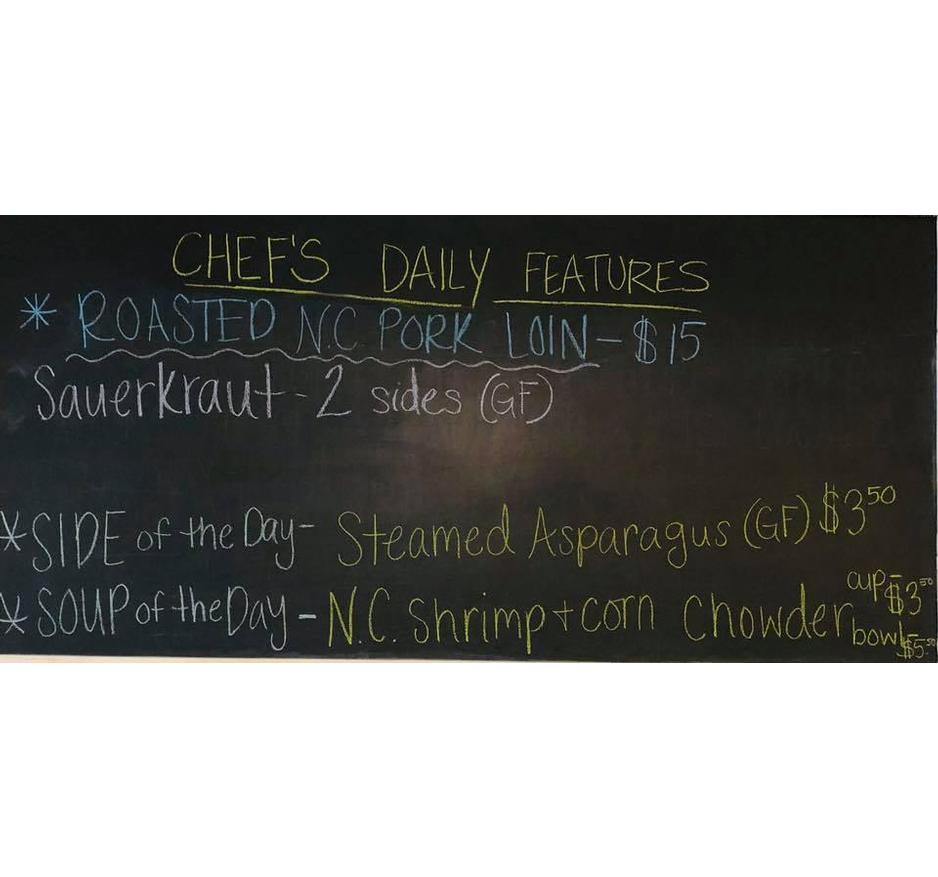 CHEF'S DAILY FEATURES
* ROASTED N.C. PORK LOIN - $15
Sauerkraut - 2 sides (GF)
* SIDE of the Day - Steamed Asparagus (GF) $3.50
* SOUP of the Day - N.C. Shrimp + corn Chowder cup - $3.50
bowl $5.50